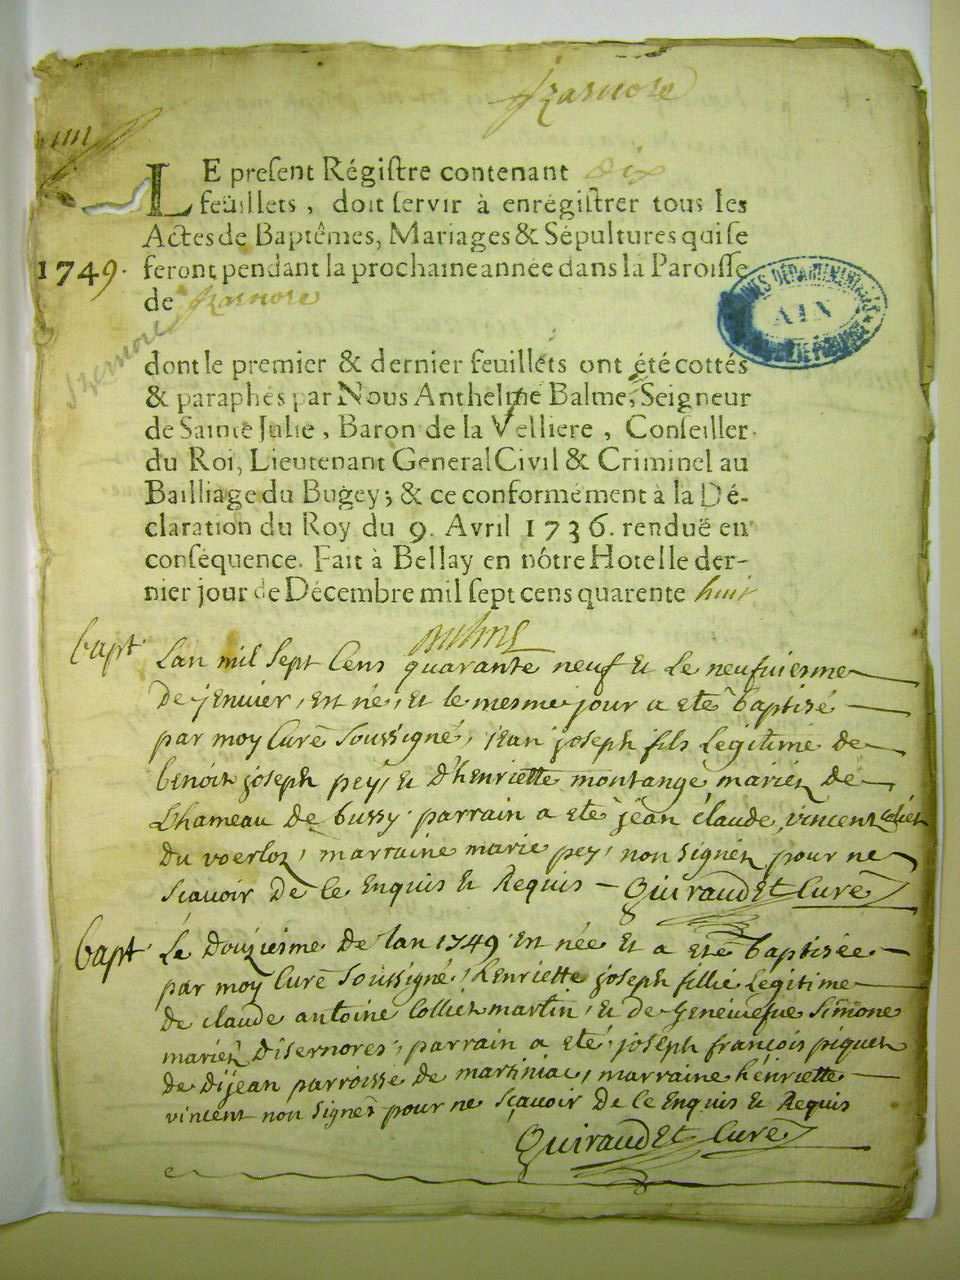 Izarnore
LE present Régistre contenant dix
feüillets, doit servir à enrégistrer tous les
Actes de Baptêmes, Mariages & Sépultures qui se
1749. feront pendant la prochaine année dans la Paroisse
de Izarnore
Izernore
AIN
dont le premier & dernier feuilléts ont été cottés
& paraphés par Nous Anthelme Balme, Seigneur
de Sainte Julie, Baron de la Velliere, Conseiller
du Roi, Lieutenant General Civil & Criminel au
Bailliage du Bugey; & ce conformément à la Dé-
claration du Roy du 9. Avril 1736. renduë en
conséquence. Fait à Bellay en nôtre Hotel le der-
nier jour de Décembre mil sept cens quarente huit
bapt. Lan mil sept cens quarante neuf et le neufviesme
de jenvier, est né, et le mesme jour a eté baptisé
par moy curé soussigné, jean joseph fils legitime de
benoit joseph pey, et d'henriette montange mariez de
Lhameau de bussy. parrain a eté jean claude vincent
du voerloz, marraine marie pey, non signez pour ne
sçavoir de ce enquis et Requis - Quiraudet curé
bapt. Le douziesme de lan 1749 est née et a eté baptisée
par moy curé soussigné, henriette joseph fillie legitime
de claude antoine colliet martin, et de geneviefve simone
mariez disernores, parrain a eté joseph françois piquet
de dijean parroisse de martiniac, marraine henriette
vincent non signez pour ne sçavoir de ce enquis et Requis
Quiraudet curé